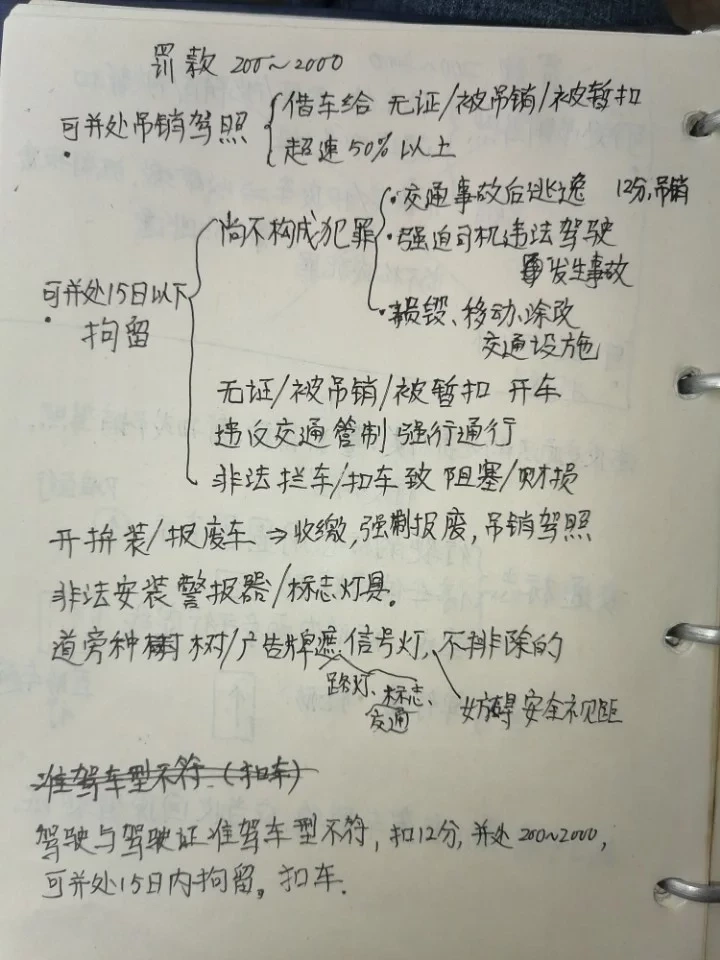 罚款 200~2000
可并处吊销驾照
借车给 无证/被吊销/被暂扣
超速50%以上
可并处15日以下
拘留
尚不构成犯罪
·交通事故后逃逸 12分,吊销
·强迫司机违法驾驶
发生事故
·损毁、移动、涂改
交通设施
无证/被吊销/被暂扣 开车
违反交通管制 强行通行
非法拦车/扣车致 阻塞/财损
开拚装/报废车 ⇒收缴,强制报废,吊销驾照
非法安装警报器/标志灯具。
道旁种树/广告牌遮信号灯,不排除的
路灯、标志、
交通
妨碍安全视距
准驾车型不符(扣车)
驾驶与驾驶证准驾车型不符,扣12分,并处200~2000,
可并处15日内拘留。扣车.